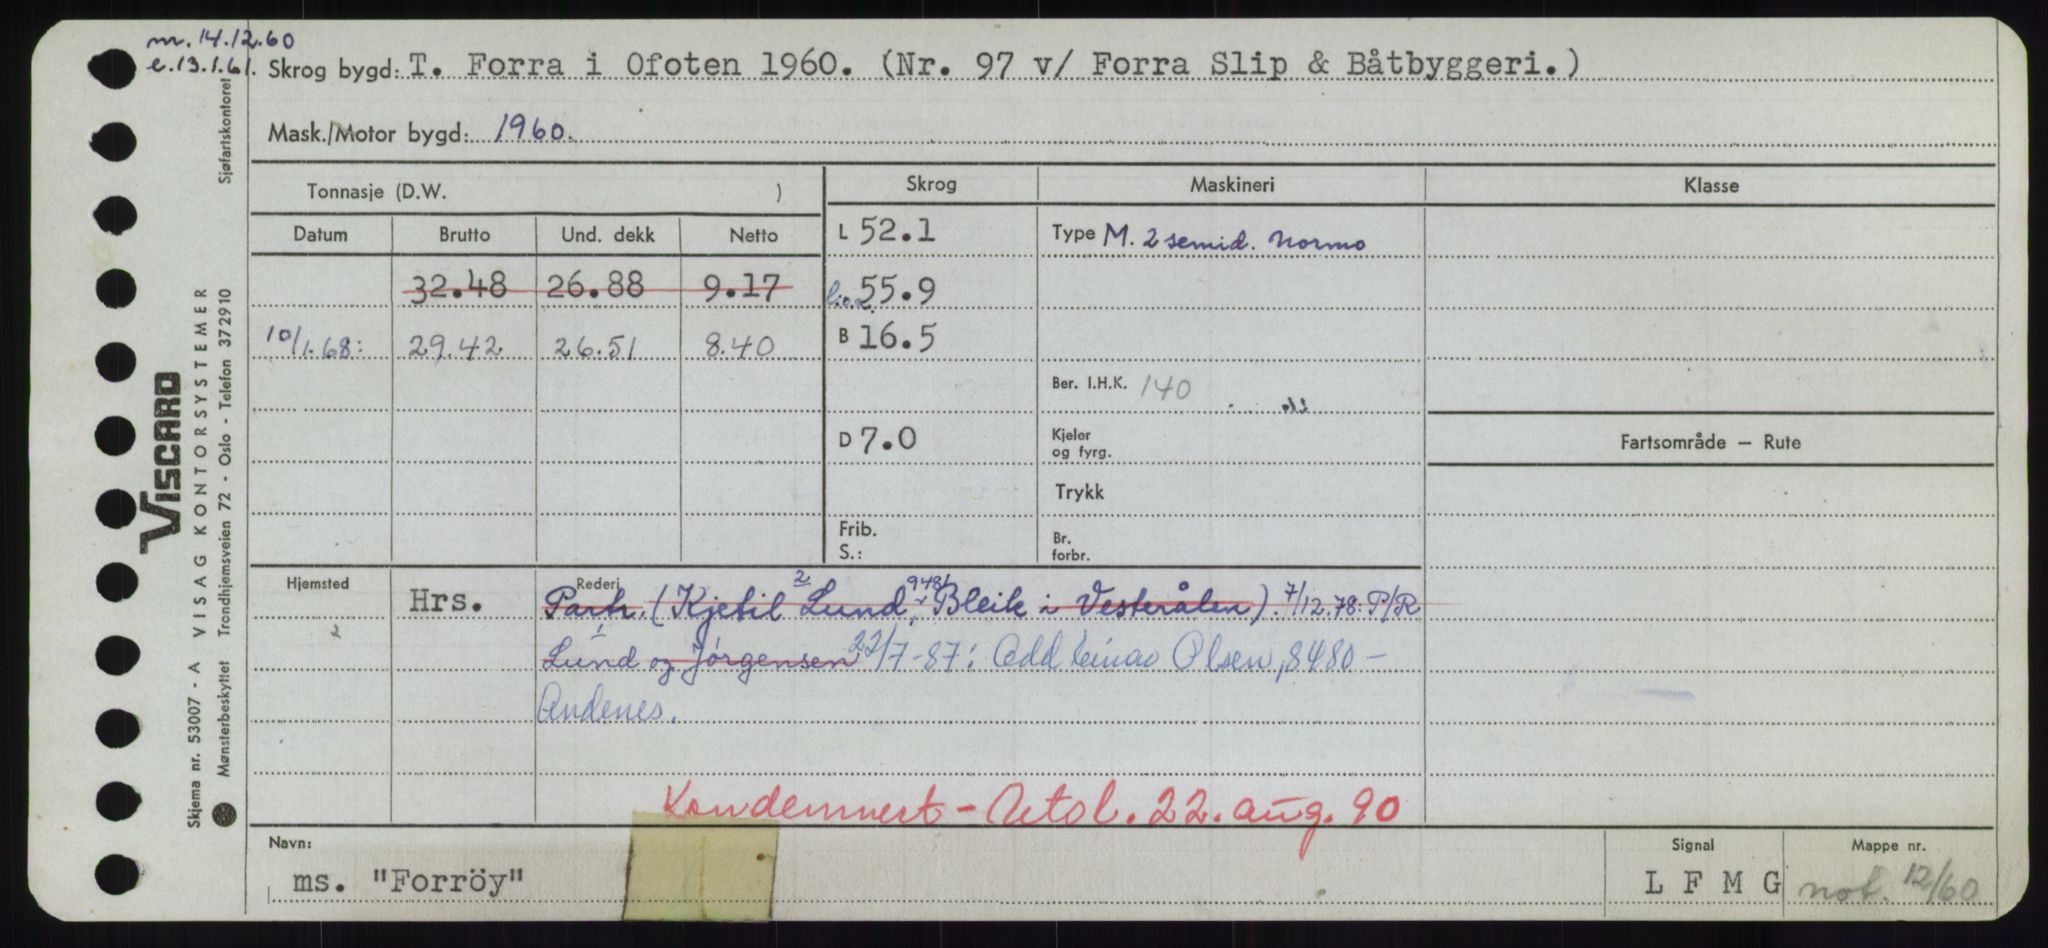 m. 14.12.60
e. 13.1.61.
Skrog bygd: T. Forra i Ofoten 1960. (Nr. 97 v/ Forra Slip & Båtbyggeri.)
Mask./Motor bygd: 1960.
Tonnasje (D.W. )
Skrog
Maskineri
Klasse
Datum Brutto Und. dekk Netto
L 52.1
Type M. 2 semid. Normo
32.48 26.88 9.17
l.o.a. 55.9
10/1.68: 29.42 26.51 8.40
B 16.5
Ber. I.H.K. 140
D 7.0
Kjeler
og fyrg.
Fartsområde — Rute
Trykk
Frib.
S.:
Br.
forbr.
Hjemsted
Rederi
Hrs.
Partr. (Kjetil Lund, 9481 Bleik i Vesterålen). 7/12.78: P/R
Lund og Jørgensen 22/7-87: Odd Einar Olsen, 8480 -
Andenes.
Kondemnert - 22. aug. 90
Navn:
ms. "Forröy"
Signal
L F M G
Mappe nr.
not. 12/60
Sjøfartskontoret
VISCARD
VISAG KONTORSYSTEMER
Trondhjemsveien 72 - Oslo - Telefon 372910
Skjema nr. 53007 - A
Mønsterbeskyttet